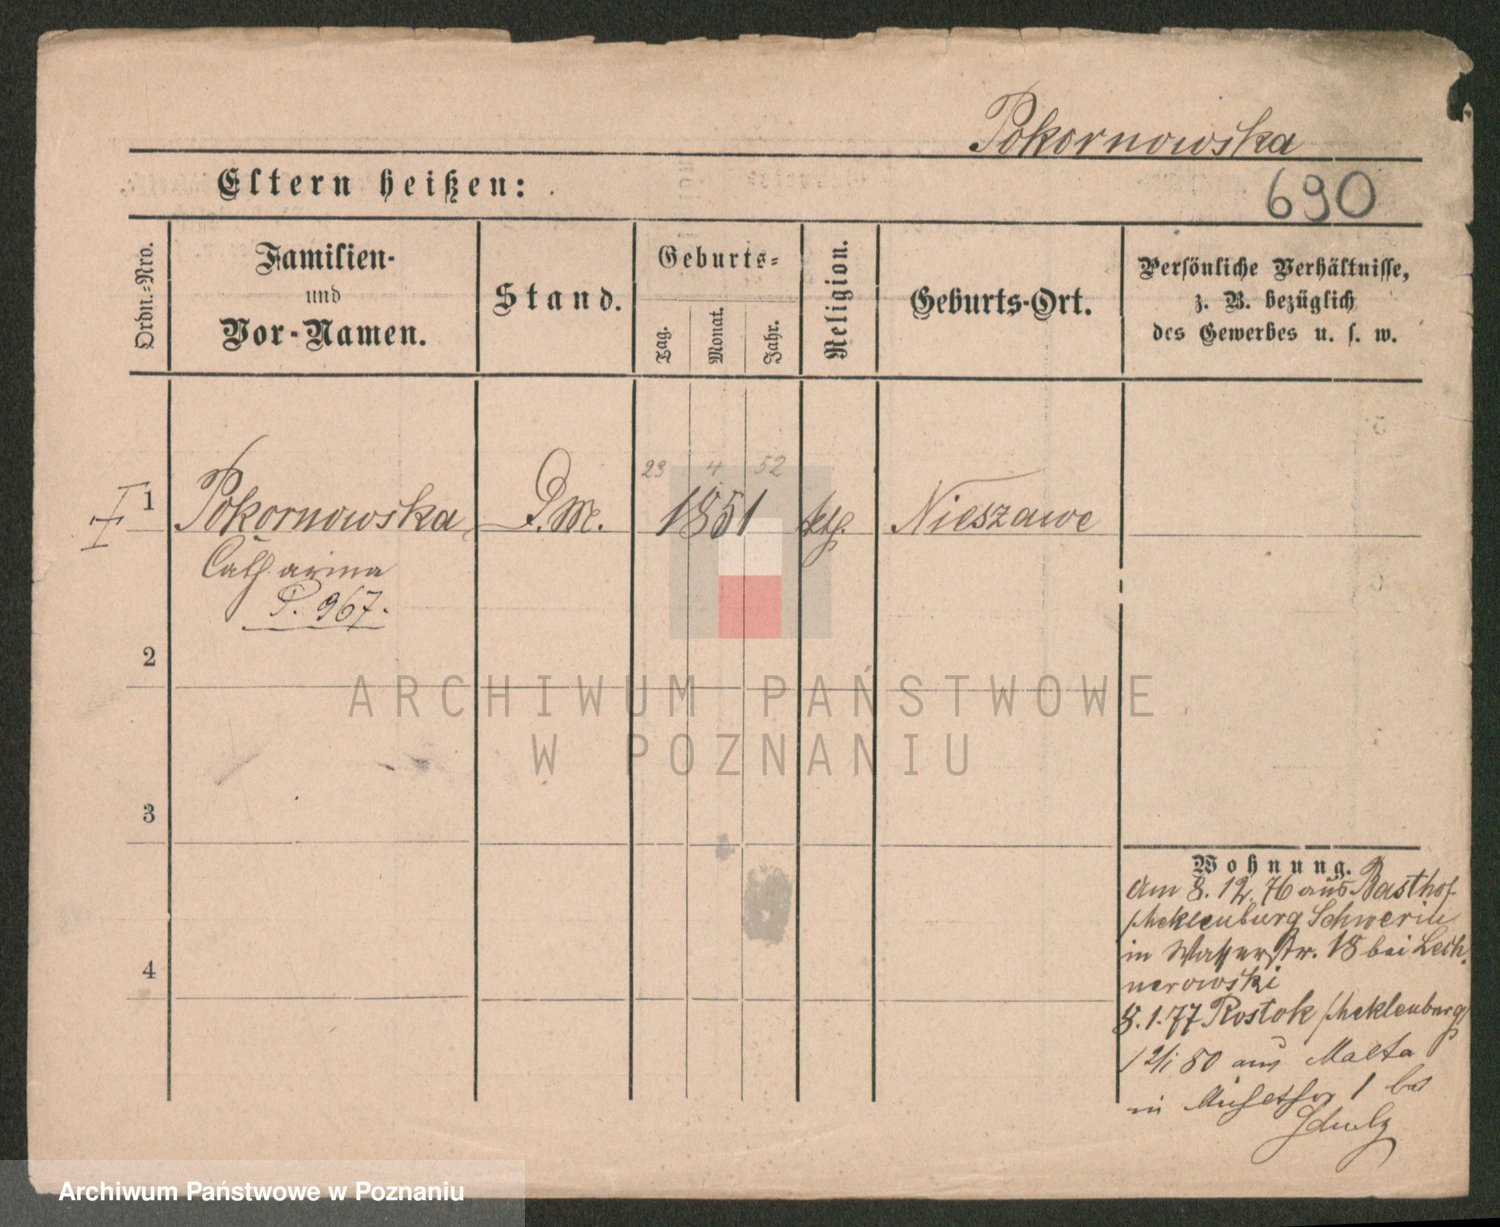 Pokornowska
Eltern heißen:
690
Ordn.-Nro.
Familien-
und
Vor-Namen.
Stand.
Geburts-
Tag.
Monat.
Jahr.
Religion.
Geburts-Ort.
Persönliche Verhältnisse,
z. B. bezüglich
des Gewerbes u. s. w.
23 4 52
1 Pokornowska D.M. 1851 kth. Nieszawe
Catharina
P. 967.
2
ARCHIWUM PAŃSTWOWE
W POZNANIU
3
4
Wohnung.
Am 8. 12. 76 aus Basthof
Mecklenburg Schwerin
in Wasserstr. 18 bei Lech-
nerowski
8.1.77 Rostok Meklenburg
aus Malta
in 1 bei
Schulz
Archiwum Państwowe w Poznaniu